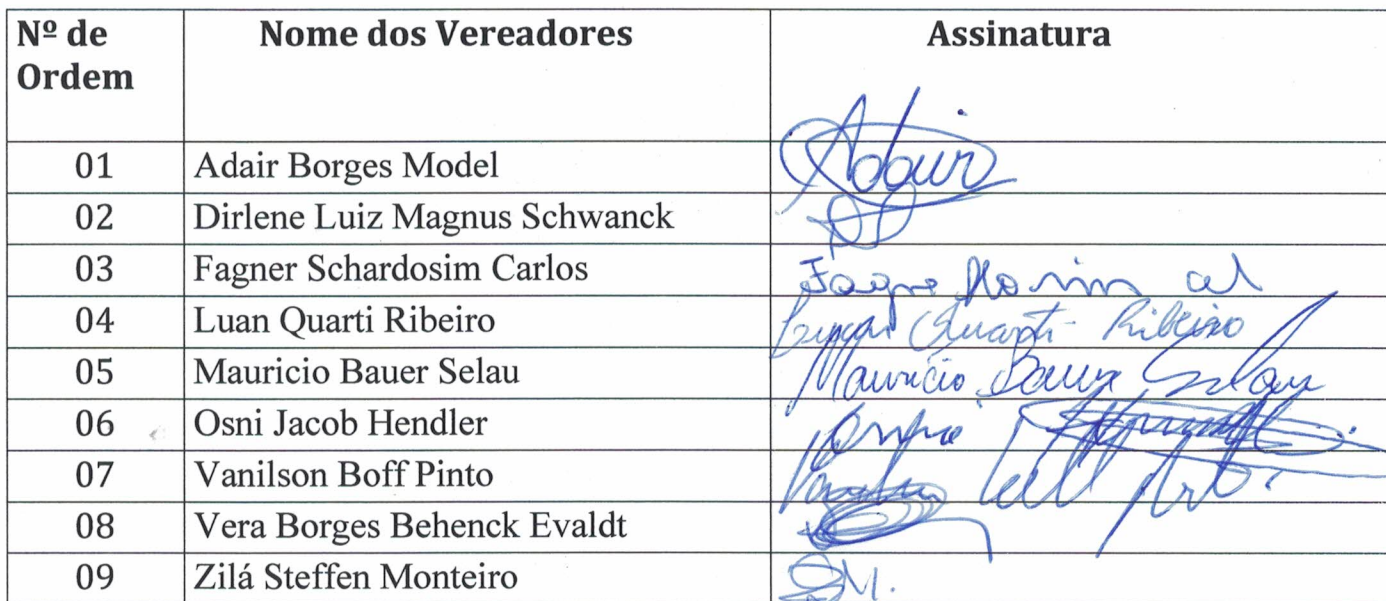 Nº de Ordem Nome dos Vereadores Assinatura
01 Adair Borges Model Adair
02 Dirlene Luiz Magnus Schwanck
03 Fagner Schardosim Carlos
04 Luan Quarti Ribeiro Luan Quarti Ribeiro
05 Mauricio Bauer Selau Mauricio Bauer Selau
06 Osni Jacob Hendler
07 Vanilson Boff Pinto
08 Vera Borges Behenck Evaldt
09 Zilá Steffen Monteiro ZM.